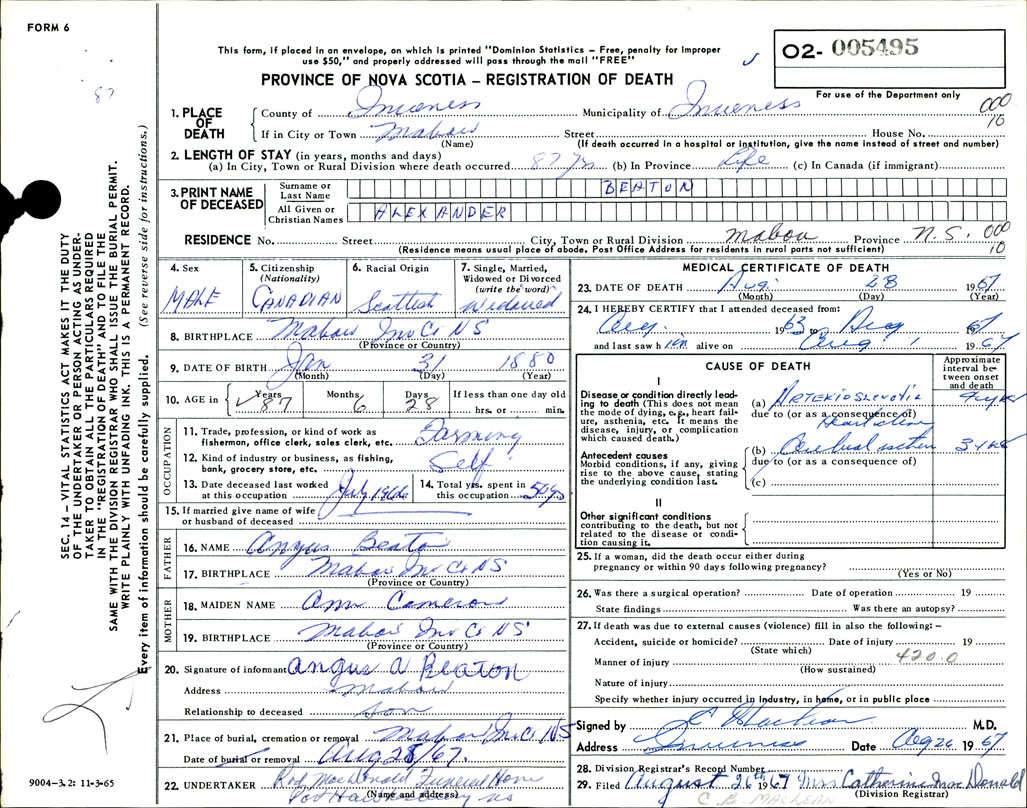 FORM 6
87
This form, if placed in an envelope, on which is printed "Dominion Statistics – Free, penalty for improper
use $50," and properly addressed will pass through the mail "FREE"
O2- 005495
For use of the Department only
PROVINCE OF NOVA SCOTIA – REGISTRATION OF DEATH
000
10
1. PLACE OF DEATH
County of Inverness Municipality of Inverness
If in City or Town Mabou Street House No.
(Name) (If death occurred in a hospital or institution, give the name instead of street and number)
2. LENGTH OF STAY (in years, months and days)
(a) In City, Town or Rural Division where death occurred 87 yrs (b) In Province Life (c) In Canada (if immigrant)
3. PRINT NAME OF DECEASED
Surname or Last Name BEATON
All Given or Christian Names ALEXANDER
RESIDENCE No. Street City, Town or Rural Division Mabou Province N.S. 000
10
(Residence means usual place of abode. Post Office Address for residents in rural parts not sufficient)
SEC. 14 – VITAL STATISTICS ACT MAKES IT THE DUTY
OF THE UNDERTAKER OR PERSON ACTING AS UNDER-
TAKER TO OBTAIN ALL THE PARTICULARS REQUIRED
IN THE "REGISTRATION OF DEATH" AND TO FILE THE
SAME WITH THE DIVISION REGISTRAR WHO SHALL ISSUE THE BURIAL PERMIT.
WRITE PLAINLY WITH UNFADING INK. THIS IS A PERMANENT RECORD.
Every item of information should be carefully supplied. (See reverse side for instructions.)
4. Sex
MALE
5. Citizenship
(Nationality)
CANADIAN
6. Racial Origin
Scottish
7. Single, Married,
Widowed or Divorced
(write the word)
Widowed
8. BIRTHPLACE Mabou Inv Co NS
(Province or Country)
9. DATE OF BIRTH Jan 31 1880
(Month) (Day) (Year)
10. AGE in Years 87 Months 6 Days 28 If less than one day old
hrs. or min.
OCCUPATION
11. Trade, profession, or kind of work as
fisherman, office clerk, sales clerk, etc. Farming
12. Kind of industry or business, as fishing,
bank, grocery store, etc. Self
13. Date deceased last worked
at this occupation July 1966
14. Total yrs. spent in
this occupation 50 yrs
15. If married give name of wife
or husband of deceased
FATHER
16. NAME Angus Beaton
17. BIRTHPLACE Mabou Inv Co NS
(Province or Country)
MOTHER
18. MAIDEN NAME Ann Cameron
19. BIRTHPLACE Mabou Inv Co NS
(Province or Country)
20. Signature of informant Angus A Beaton
Address Mabou
Relationship to deceased son
21. Place of burial, cremation or removal Mabou Inv Co NS
Date of burial or removal Aug 28/67.
22. UNDERTAKER Rod MacDonald Funeral Home
(Name and address)
9004–3.2: 11-3-65
MEDICAL CERTIFICATE OF DEATH
23. DATE OF DEATH Aug. 28 1967
(Month) (Day) (Year)
24. I HEREBY CERTIFY that I attended deceased from:
Aug. 1963 to Aug 1967
and last saw him alive on Aug 1 1967
CAUSE OF DEATH
Approximate
interval be-
tween onset
and death
I
Disease or condition directly lead-
ing to death (This does not mean
the mode of dying, e.g., heart fail-
ure, asthenia, etc. It means the
disease, injury, or complication
which caused death.)
(a) Arteriosclerotic
due to (or as a consequence of)
Antecedent causes
Morbid conditions, if any, giving
rise to the above cause, stating
the underlying condition last.
(b) Cerebral 3 yrs
due to (or as a consequence of)
(c)
II
Other significant conditions
contributing to the death, but not
related to the disease or condi-
tion causing it.
25. If a woman, did the death occur either during
pregnancy or within 90 days following pregnancy?
(Yes or No)
26. Was there a surgical operation? Date of operation 19
State findings Was there an autopsy?
27. If death was due to external causes (violence) fill in also the following: –
Accident, suicide or homicide? Date of injury 19
(State which)
420.0
Manner of injury
(How sustained)
Nature of injury
Specify whether injury occurred in industry, in home, or in public place
Signed by M.D.
Address Inverness Date Aug 26 1967
28. Division Registrar's Record Number
29. Filed August 26th 1967 Mrs Catherine MacDonald
(Division Registrar)
C. B. MACLEAN